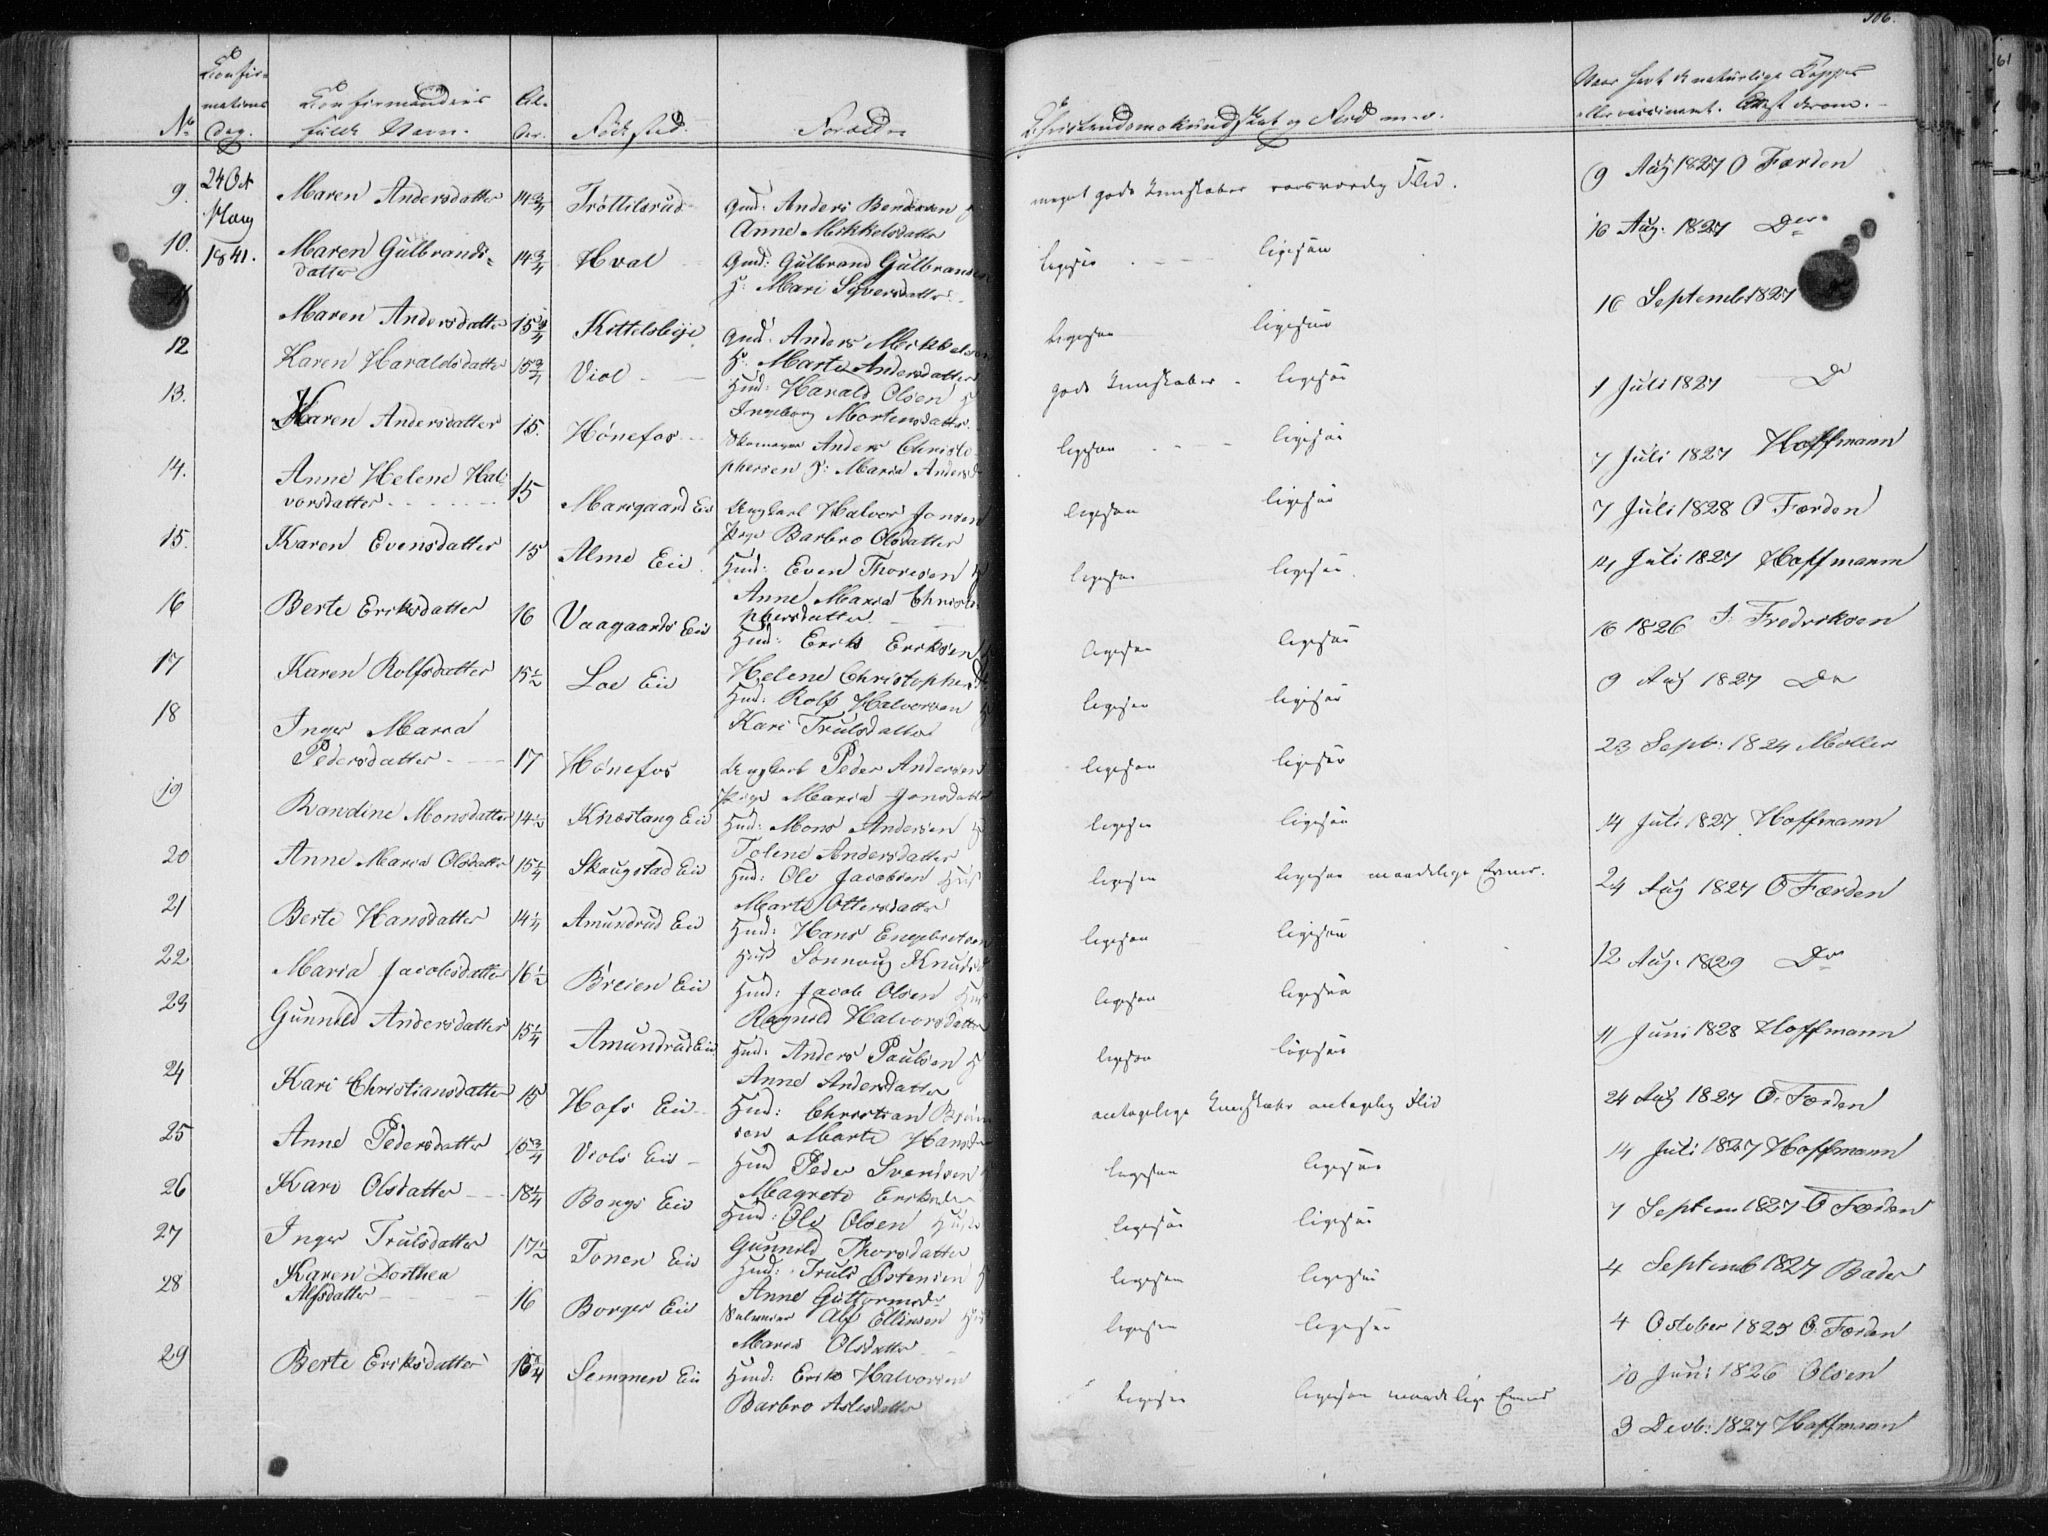 306.
61
No
Confir-
mations
Dag.
Confirmandens
fulde Navn.
Al-
der.
Födested.
Forældre
Christendomskundskab og Flid m.v.
Naar havt de naturlige Kopper
eller vaccineret. Attest derom.
24 Oct
1841.
9. Maren Andersdatter 14 3/4 Tröttilsrud Gmd. Anders Bendixen
Anne Mikkelsdatter
meget gode Kundskaber roesværdig Flid. 9 Aug 1827 O Færden
10. Maren Gulbrands-
datter 14 3/4 Hval Gmd: Gulbrand Gulbrandsen
H: Mari Siversdatter
ligesaa ligesaa 16 Aug. 1827 Do
11 Maren Andersdatter 15 3/4 Kittelsbye Gmd. Anders Mikkelsen
H: Marte Andersdatter
ligesaa ligesaa 16 Septemb 1827
12 Karen Haraldsdatter 15 3/4 Viol Hmd: Harald Olsen H
Ingeborg Mortensdatter
gode Kundskaber ligesaa 1 Juli 1827 Do
13. Karen Andersdatter 15. Hönefos Skomager Anders Christo
phersen H: Maria Andersd
ligesaa ligesaa 7 Juli 1827 Hoffmann
14. Anne Helene Hal-
vorsdatter 15 Marigaard Eie Ungkarl Halvor Jonsen
Pige Barbro Olsdatter
ligesaa ligesaa 7 Juli 1828 O Færden
15. Karen Evensdatter 15 Alme Eie Hmd: Even Thoresen H
Anne Maria Christo
phersdatter
ligesaa ligesaa 14 Juli 1827 Hoffmann
16 Berte Eriksdatter 16 Vaagaards Eie Hmd: Erik Eriksen H
Helene Christophersd
ligesaa ligesaa 16 1826 J. Fredriksen
17 Karen Rolfsdatter 15 1/2 Loe Eie Hmd: Rolf Halvorsen H
Kari Trulsdatter
ligesaa ligesaa 9 Aug 1827 Do
18 Inger Maria
Pedersdatter 17 Hönefos Ungkarl Peder Andersen
Pige Maria Jonsdatter
ligesaa ligesaa 23 Sept: 1824 Möller
19 Randine Monsdatter 14 1/2 Knæstang Eie Hmd: Mons Andersen H
Tolene Andersdatter
ligesaa ligesaa 14 Juli 1827 Hoffmann
20 Anne Maria Olsdatter 15 1/4 Skaugstad Eie Hmd: Ole Jacobsen Hust
Marte Ottersdatter
ligesaa ligesaa maadelige Evner. 24 Aug 1827 O Færden
21 Berte Hansdatter 14 1/4 Amundrud Eie Hmd: Hans Engebretsen
Hust Sönnoug Knudsd
ligesaa ligesaa 12 Aug. 1829 Do
22 Maria Jacobsdatter 16 1/2 Breien Eie Hmd: Jacob Olsen Hust
Ragnild Halvorsdatter
ligesaa ligesaa 11 Juni 1828 Hoffmann
23 Gunnild Andersdatter 15 1/4 Amundrud Eie Hmd: Anders Paulsen H
Anne Andersdatter
ligesaa ligesaa 24 Aug 1827 O. Færden
24 Kari Christiansdatter 15 Hofs Eie Hmd: Christian
sen Marte Hansd
antagelige Kundskaber antagelig Flid 14 Juli 1827 Hoffmann
25 Anne Pedersdatter 15 3/4 Viols Eie Hmd Peder Svendsen
Magrete Eriksd
ligesaa ligesaa 7 Septem 1827 O Færden
26 Kari Olsdatter 18 1/4 Bongs Eie Hmd: Ole Olsen Hust
Gunnild Thorsdatter
ligesaa ligesaa 4 Septemb 1827 Bader
27 Inger Trulsdatter 17 1/2 Tonen Eie Hmd: Truls Östensen H
Anne Guttormsd
ligesaa ligesaa 4 October 1825 O. Færden
28 Karen Dorthea
Alfsdatter 16 Borger Eie Alf Ellinsen
Maria Olsdatter
ligesaa ligesaa 10 Juni 1826 Olsen
29 Berte Eriksdatter 15 3/4 Semmen Eie Hmd: Erik Halvorsen
Barbro Aslesdatter
ligesaa ligesaa maadelige Evner 3 Decb: 1827 Hoffmann